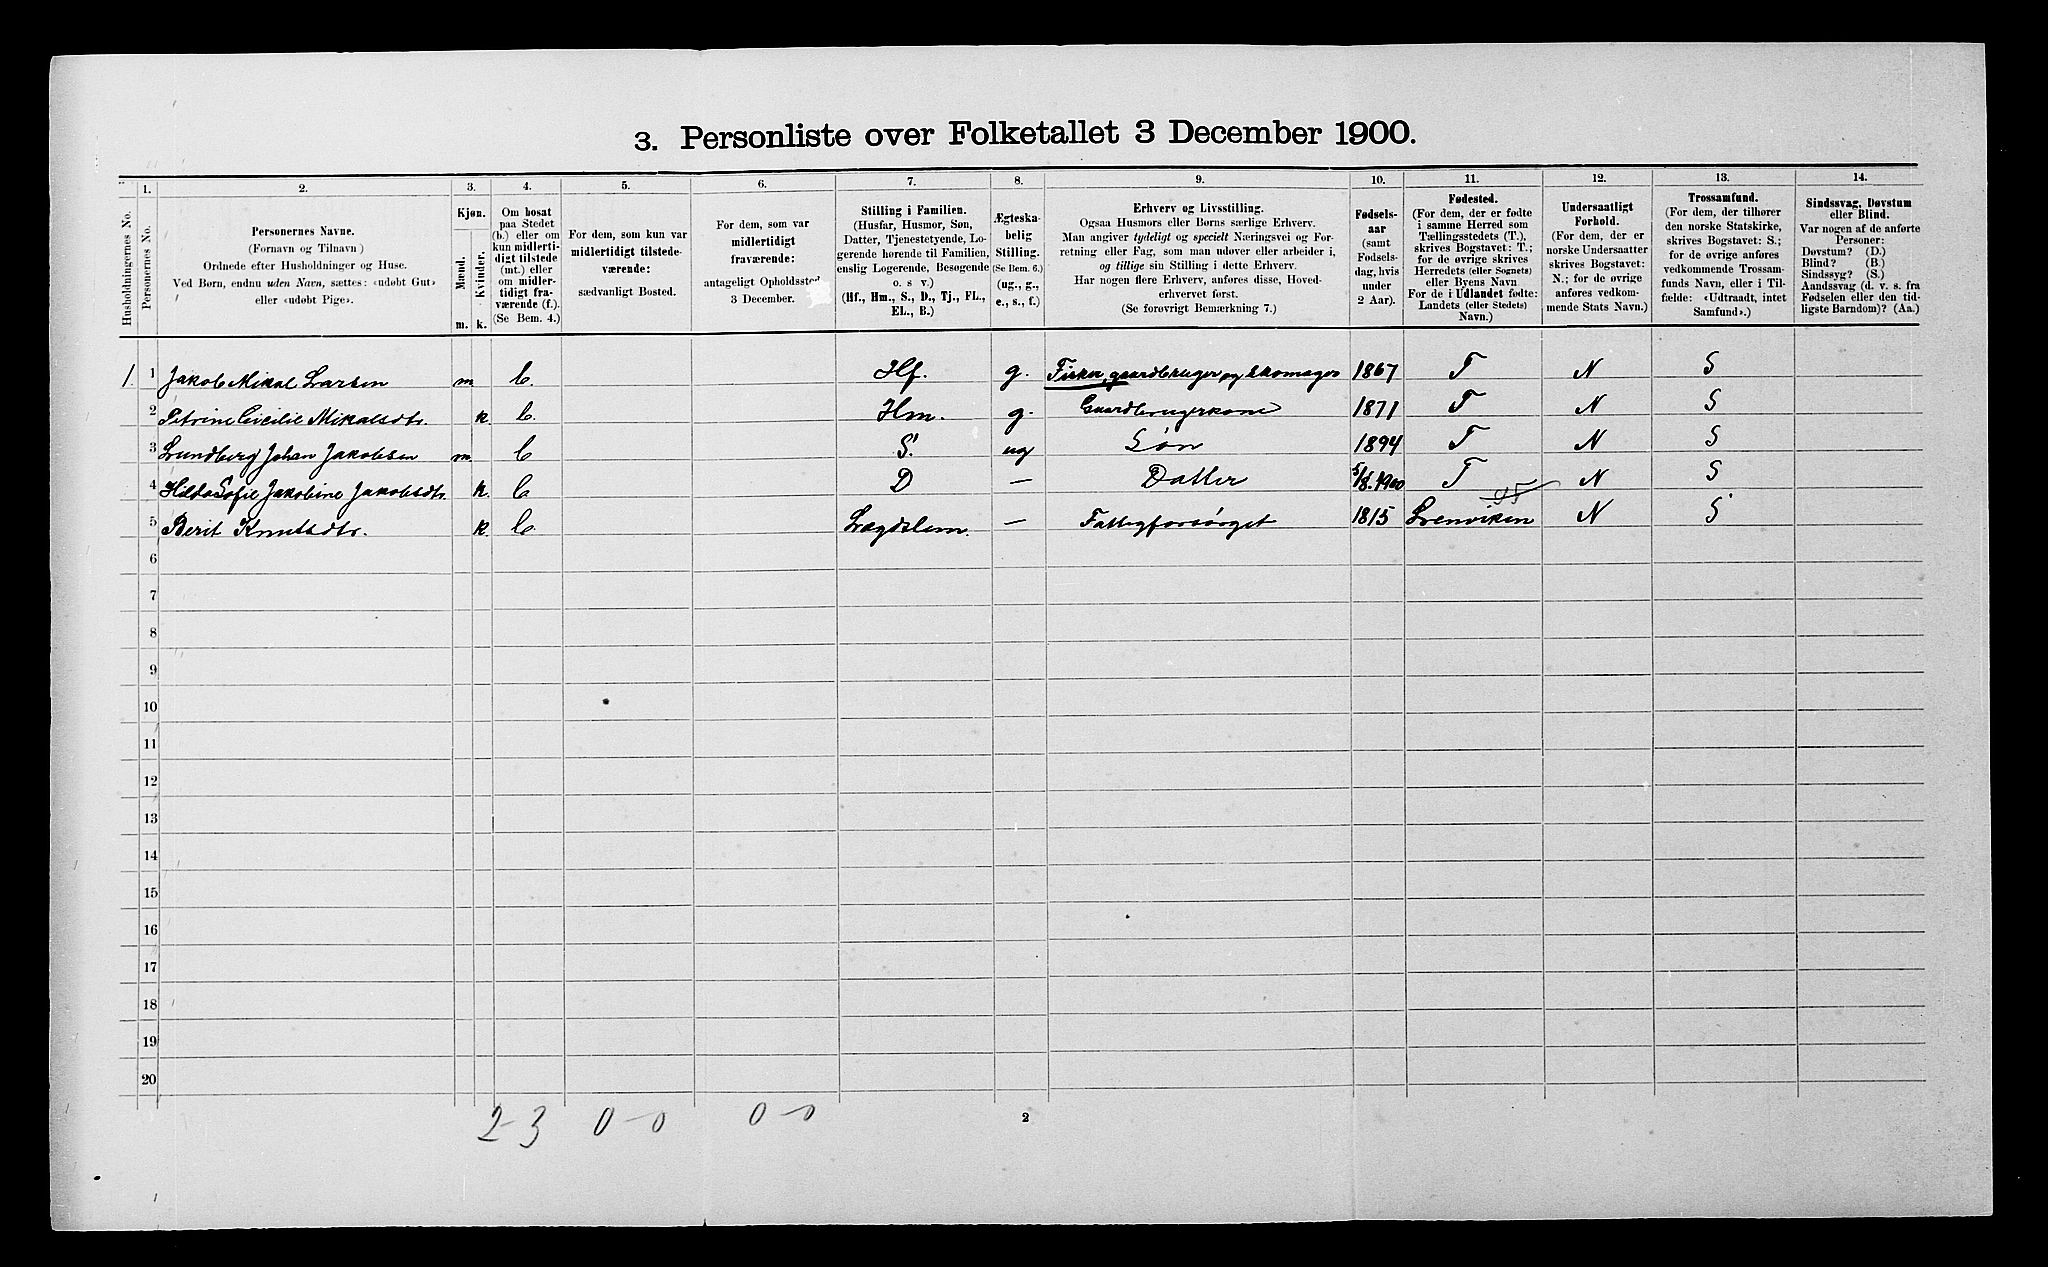 3. Personliste over Folketallet 3 December 1900.
1. 2. 3. 4. 5. 6. 7. 8. 9. 10. 11. 12. 13. 14.
Husholdningernes No.
Personernes No.
Personernes Navne.
(Fornavn og Tilnavn)
Ordnede efter Husholdninger og Huse.
Ved Børn, endnu uden Navn, sættes: «udøbt Gut»
eller «udøbt Pige».
Kjøn.
Mænd. Kvinder.
m. k.
Om bosat
paa Stedet
(b.) eller om
kun midlerti-
digt tilstede
(mt.) eller
om midler-
tidigt fra-
værende (f.).
(Se Bem. 4.)
For dem, som kun var
midlertidigt tilstede-
værende:
sædvanligt Bosted.
For dem, som var
midlertidigt
fraværende:
antageligt Opholdssted
3 December.
Stilling i Familien.
(Husfar, Husmor, Søn,
Datter, Tjenestetyende, Lo-
gerende hørende til Familien,
enslig Logerende, Besøgende
o. s v.)
(Hf., Hm., S., D., Tj., FL.,
EL., B.)
Ægteska-
belig
Stilling.
(Se Bem. 6.)
(ug., g.,
e., s., f.)
Erhverv og Livsstilling.
Ogsaa Husmors eller Børns særlige Erhverv.
Man angiver tydeligt og specielt Næringsvei og For-
retning eller Fag, som man udøver eller arbeider i,
og tillige sin Stilling i dette Erhverv.
Har nogen flere Erhverv, anføres disse, Hoved-
erhvervet først.
(Se forøvrigt Bemærkning 7.)
Fødsels-
aar
(samt
Fødsels-
dag, hvis
under
2 Aar).
Fødested.
(For dem, der er fødte
i samme Herred som
Tællingsstedets (T.),
skrives Bogstavet: T.;
for de øvrige skrives
Herredets (eller Sognets)
eller Byens Navn
For de i Udlandet fødte:
Landets (eller Stedets)
Navn.)
Undersaatligt
Forhold.
(For dem, der er
norske Undersaatter
skrives Bogstavet:
N.; for de øvrige
anføres vedkom-
mende Stats Navn.)
Trossamfund.
(For dem, der tilhører
den norske Statskirke,
skrives Bogstavet: S.;
for de øvrige anføres
vedkommende Trossam-
funds Navn, eller i Til-
fælde: «Udtraadt, intet
Samfund».)
Sindssvag, Døvstum
eller Blind.
Var nogen af de anførte
Personer:
Døvstum? (D.)
Blind? (B.)
Sindssyg? (S.)
Aandssvag (d. v. s. fra
Fødselen eller den tid-
ligste Barndom)? (Aa.)
1. 1 Jakob Mikal Larsen m. b. Hf. g. Fisker, gaardbruger og skomager 1867 T N S
2 Petrine Cicilie Mikalsdtr. k. b. Hm. g. Gaardbrugerkone 1871 T N S
3 Lundberg Johan Jakobsen m. b S. ug Søn 1894 T N S
4 Hilda Sofie Jakobine Jakobsdtr. k. b D — Datter 5/8.1900 T N S
5 Berit Knutsdtr. k. b Lægdslem. — Fattigforsørget 1815 Lenviken N S
6
7
8
9
10
11
12
13
14
15
16
17
18
19
20
2-3 0-0 0-0 2